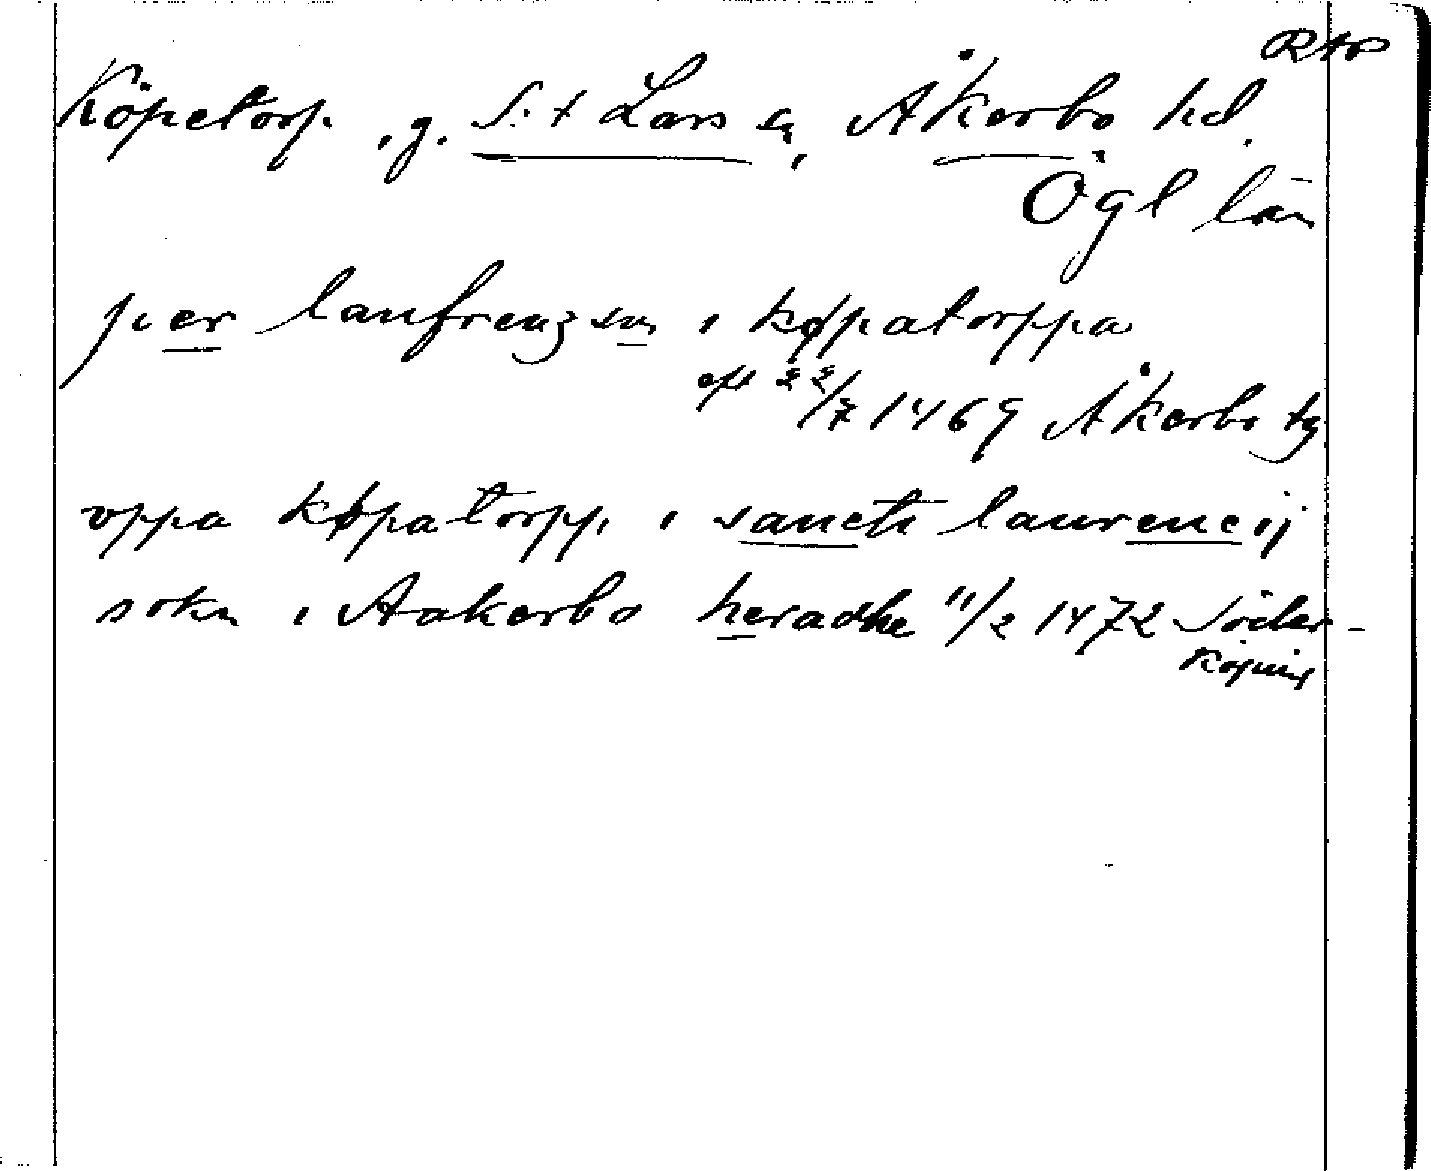 RAP
Köpetorp, g. S:t Lars sn, Åkerbo hd.
Ögl län
per laufrenzsın i køpatorppa
eft 22/7 1469 Åkerbo tg
vppa køpatorpp i sancti laurencij
sokn i Aakerbo heradhe 11/2 1472 Söder-
köping